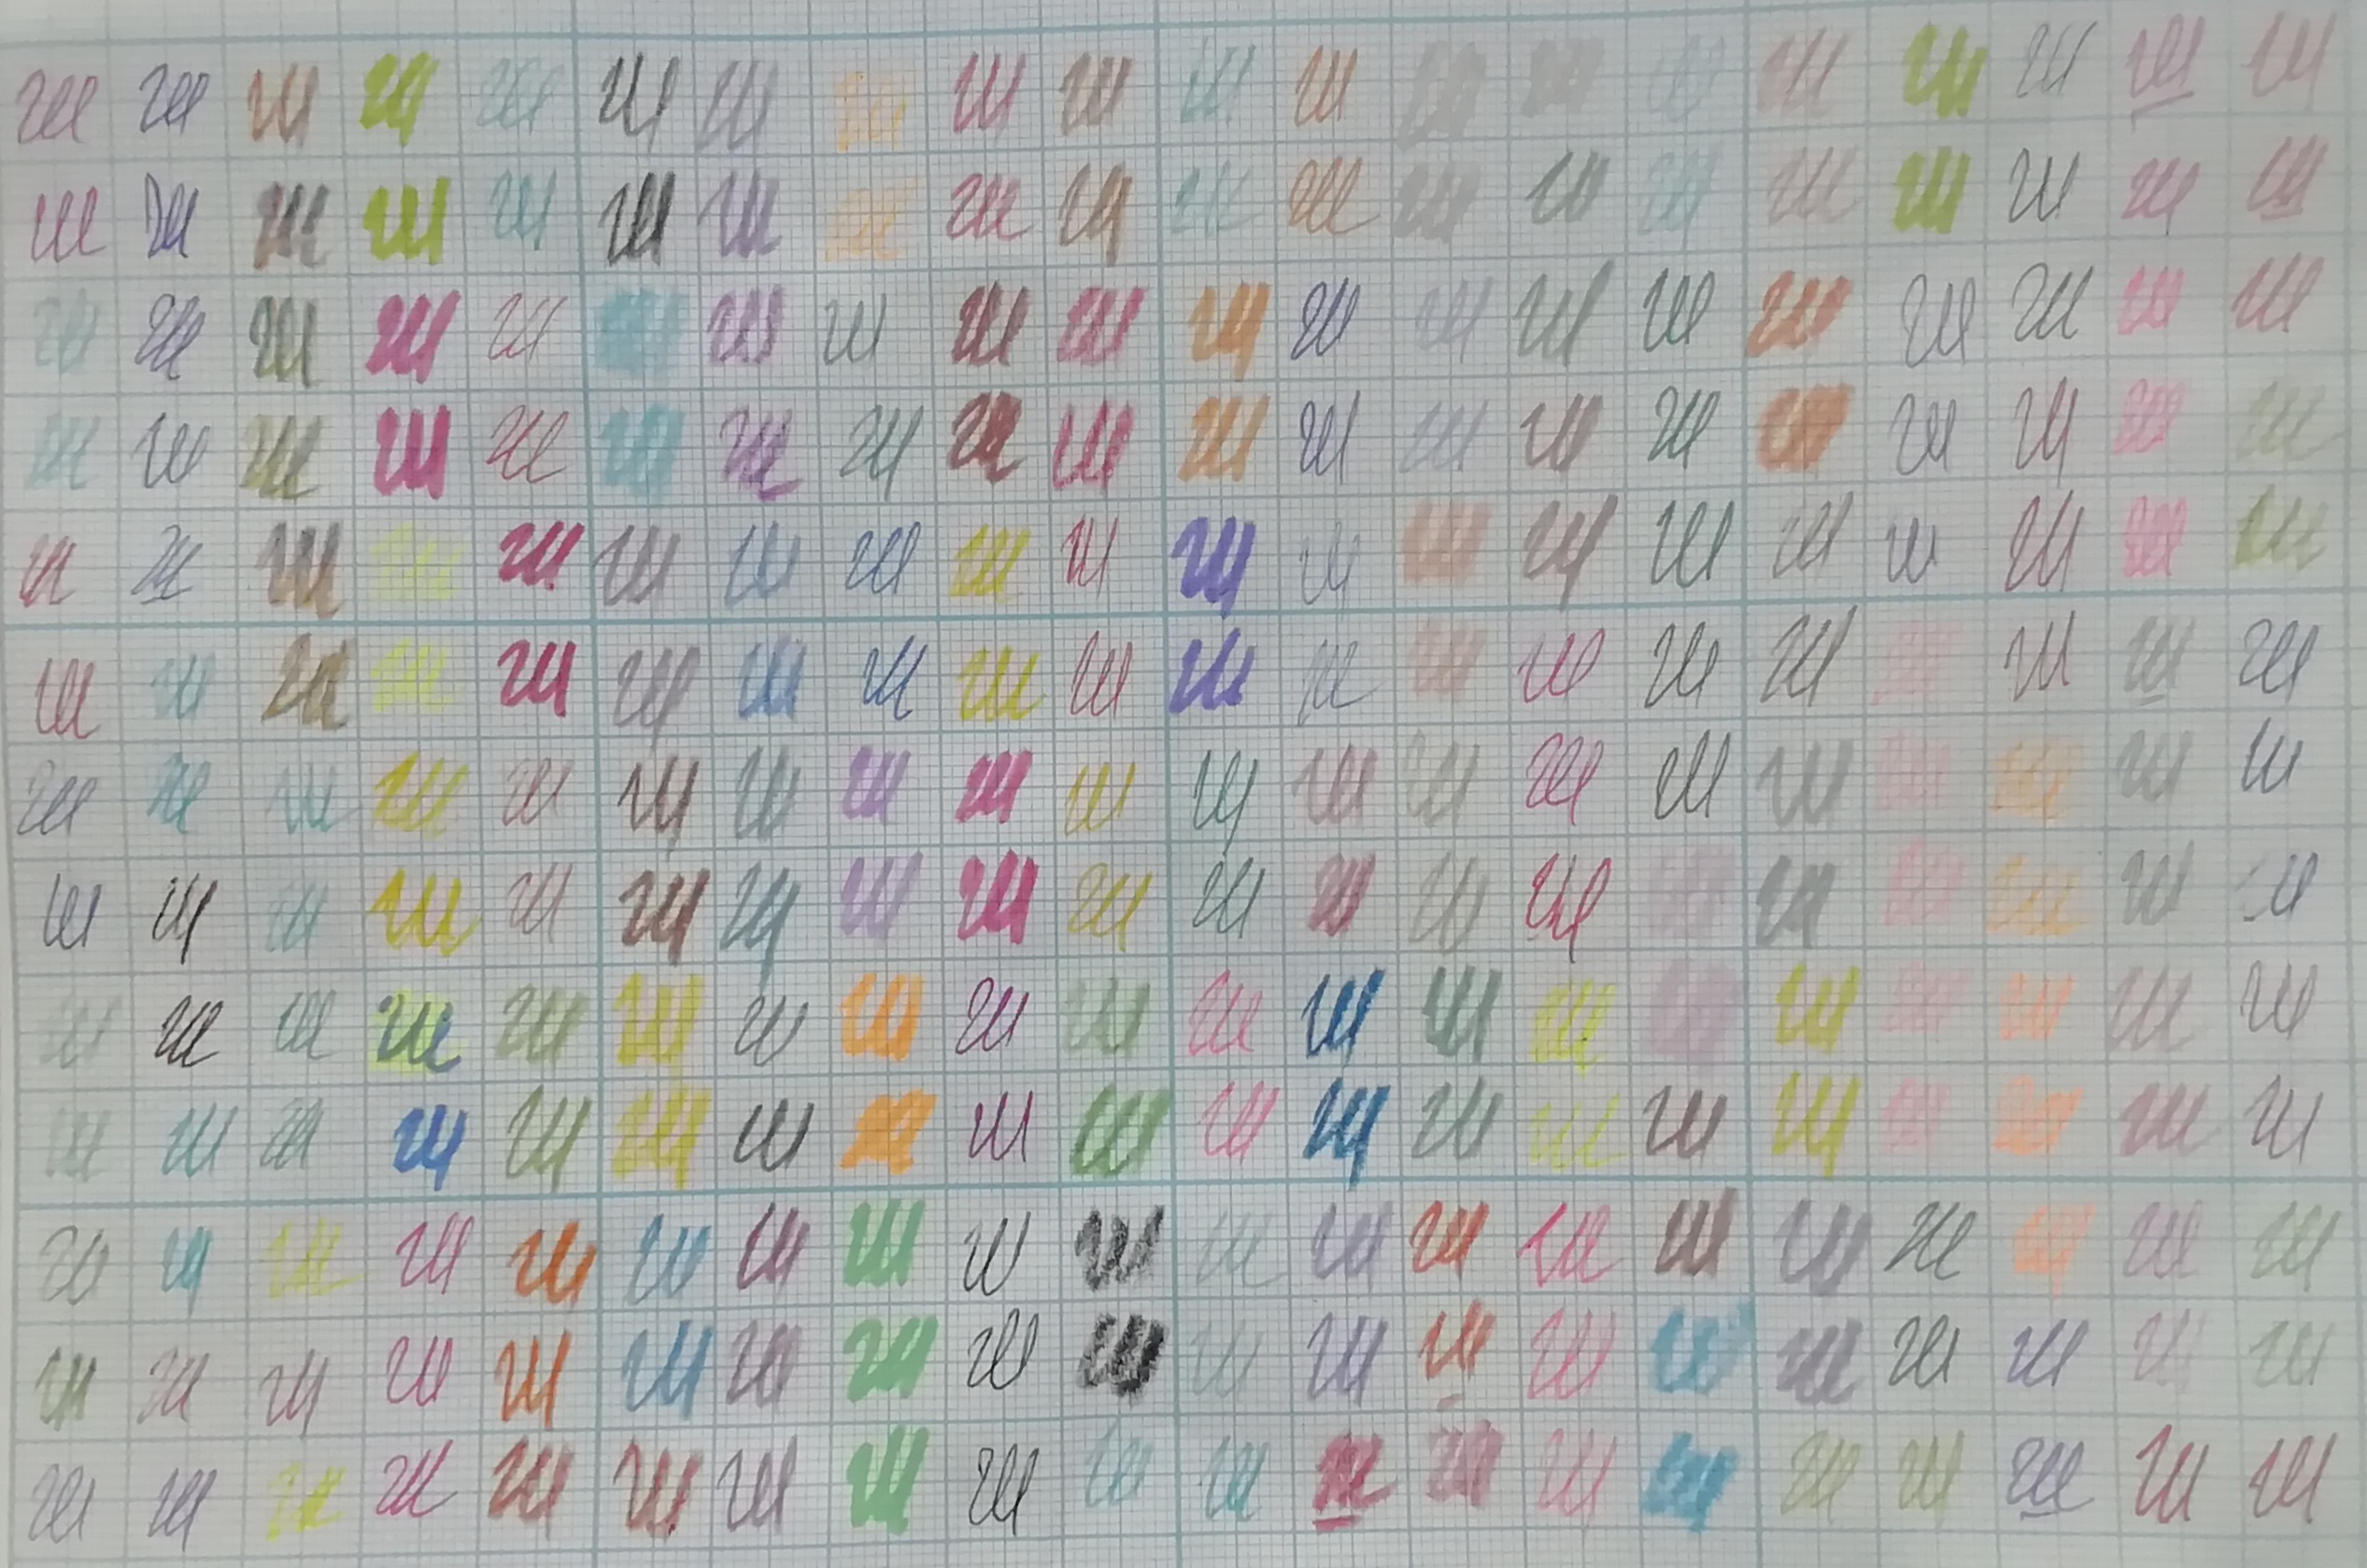 ш ш ш ш ш ш ш ш ш ш ш ш ш ш ш ш ш ш ш ш
ш ш ш ш ш ш ш ш ш ш ш ш ш ш ш ш ш ш ш ш
ш ш ш ш ш ш ш ш ш ш ш ш ш ш ш ш ш ш ш ш
ш ш ш ш ш ш ш ш ш ш ш ш ш ш ш ш ш ш ш ш
ш ш ш ш ш ш ш ш ш ш ш ш ш ш ш ш ш ш ш ш
ш ш ш ш ш ш ш ш ш ш ш ш ш ш ш ш ш ш ш ш
ш ш ш ш ш ш ш ш ш ш ш ш ш ш ш ш ш ш ш ш
ш ш ш ш ш ш ш ш ш ш ш ш ш ш ш ш ш ш ш ш
ш ш ш ш ш ш ш ш ш ш ш ш ш ш ш ш ш ш ш ш
ш ш ш ш ш ш ш ш ш ш ш ш ш ш ш ш ш ш ш ш
ш ш ш ш ш ш ш ш ш ш ш ш ш ш ш ш ш ш ш ш
ш ш ш ш ш ш ш ш ш ш ш ш ш ш ш ш ш ш ш ш
ш ш ш ш ш ш ш ш ш ш ш ш ш ш ш ш ш ш ш ш